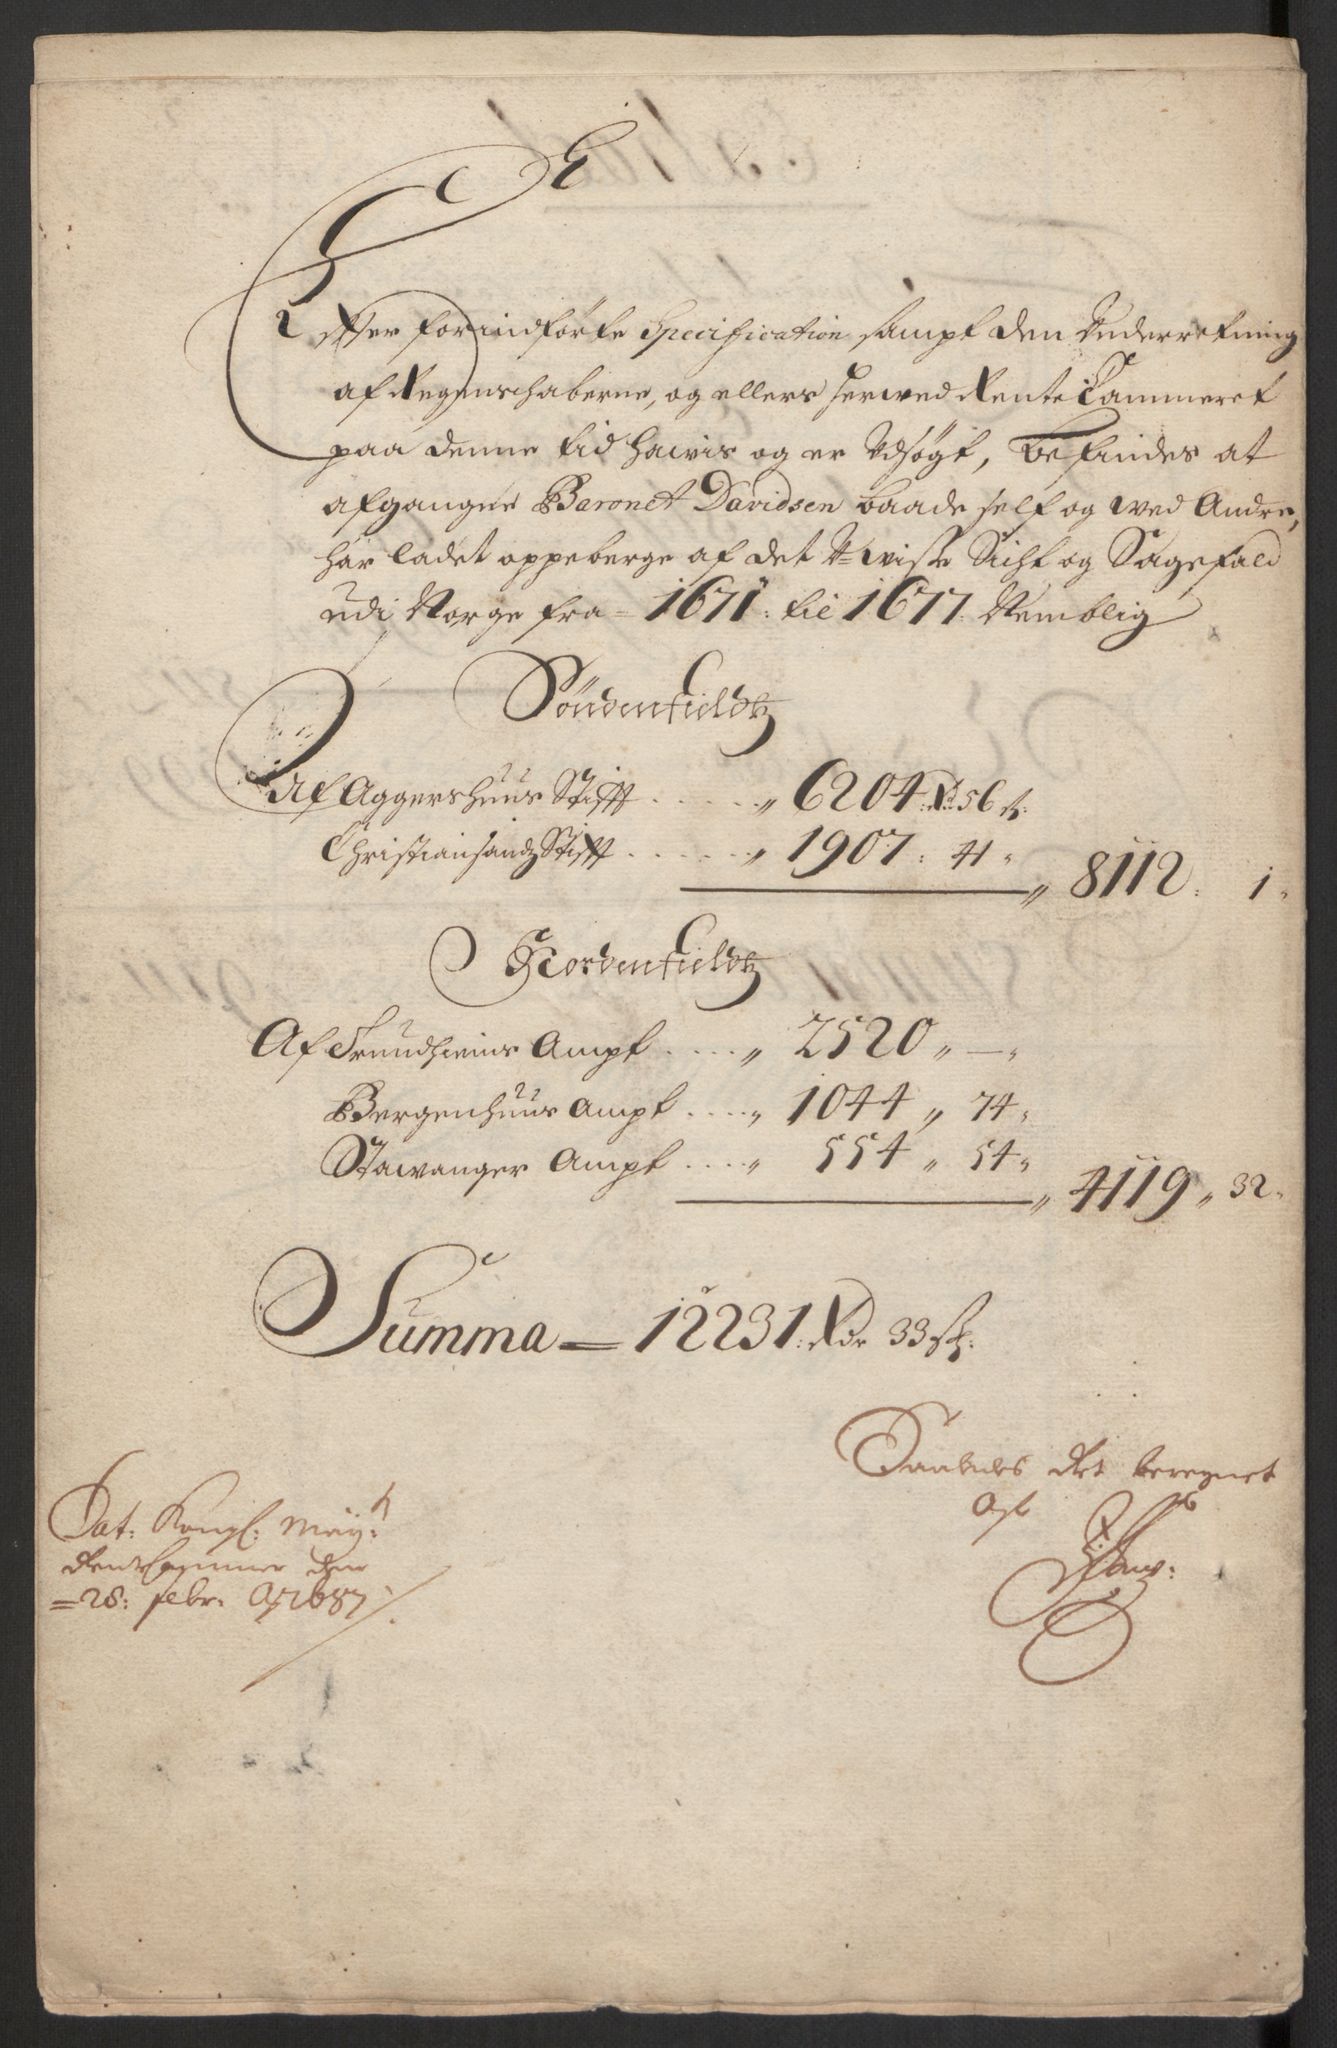 E
Effter forindførte Specification sampt den Underretning
af Regenschaberne, og ellers herved Rente Cammeret
paa denne tid haives og er Udsøgt, befindes at
afgangne Baronet Davidsen baade self og wed Andre,
har ladet oppeberge af det U=wisse Sicht og Sagefald
udi Norge fra = 1671: til 1677. Nemblig
Söndenfieldtz
Af Aggershuus Stifft . . . . . „ 6204: Rd 56 s:
Christiansandtz Stifft . . . . . „ 1907: 41 „
„ 8112: 1 „
Nordenfieldtz
Af Trundhiems Ampt . . . . „ 2520 „ — „
Bergenhuus Ampt . . . . „ 1044 „ 74 „
Stawanger Ampt . . . . „ 554 „ 54 „
„ 4119 „ 32 „
Summa = 12231: Rdr 33 sk:
Saaledes det beregnet
Af
Dat: Kongl: Maÿ:
Rentecammer den
=28: febr: Ao 1687